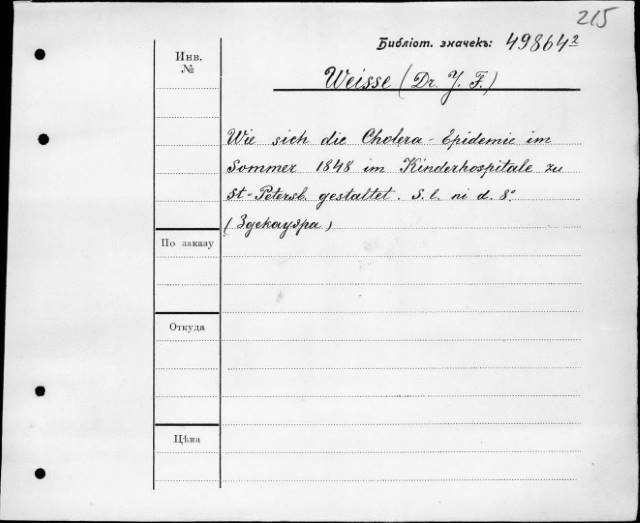 215
Библіот. значекъ: 49864²
Инв.
№
Weisse (Dr. J. F.)
Wie sich die Cholera-Epidemie im
Sommer 1848 im Kinderhospitale zu
St=Petersb. gestaltet. S. l. ni d. 8°.
(Здекауэра)
По заказу
Откуда
Цѣна